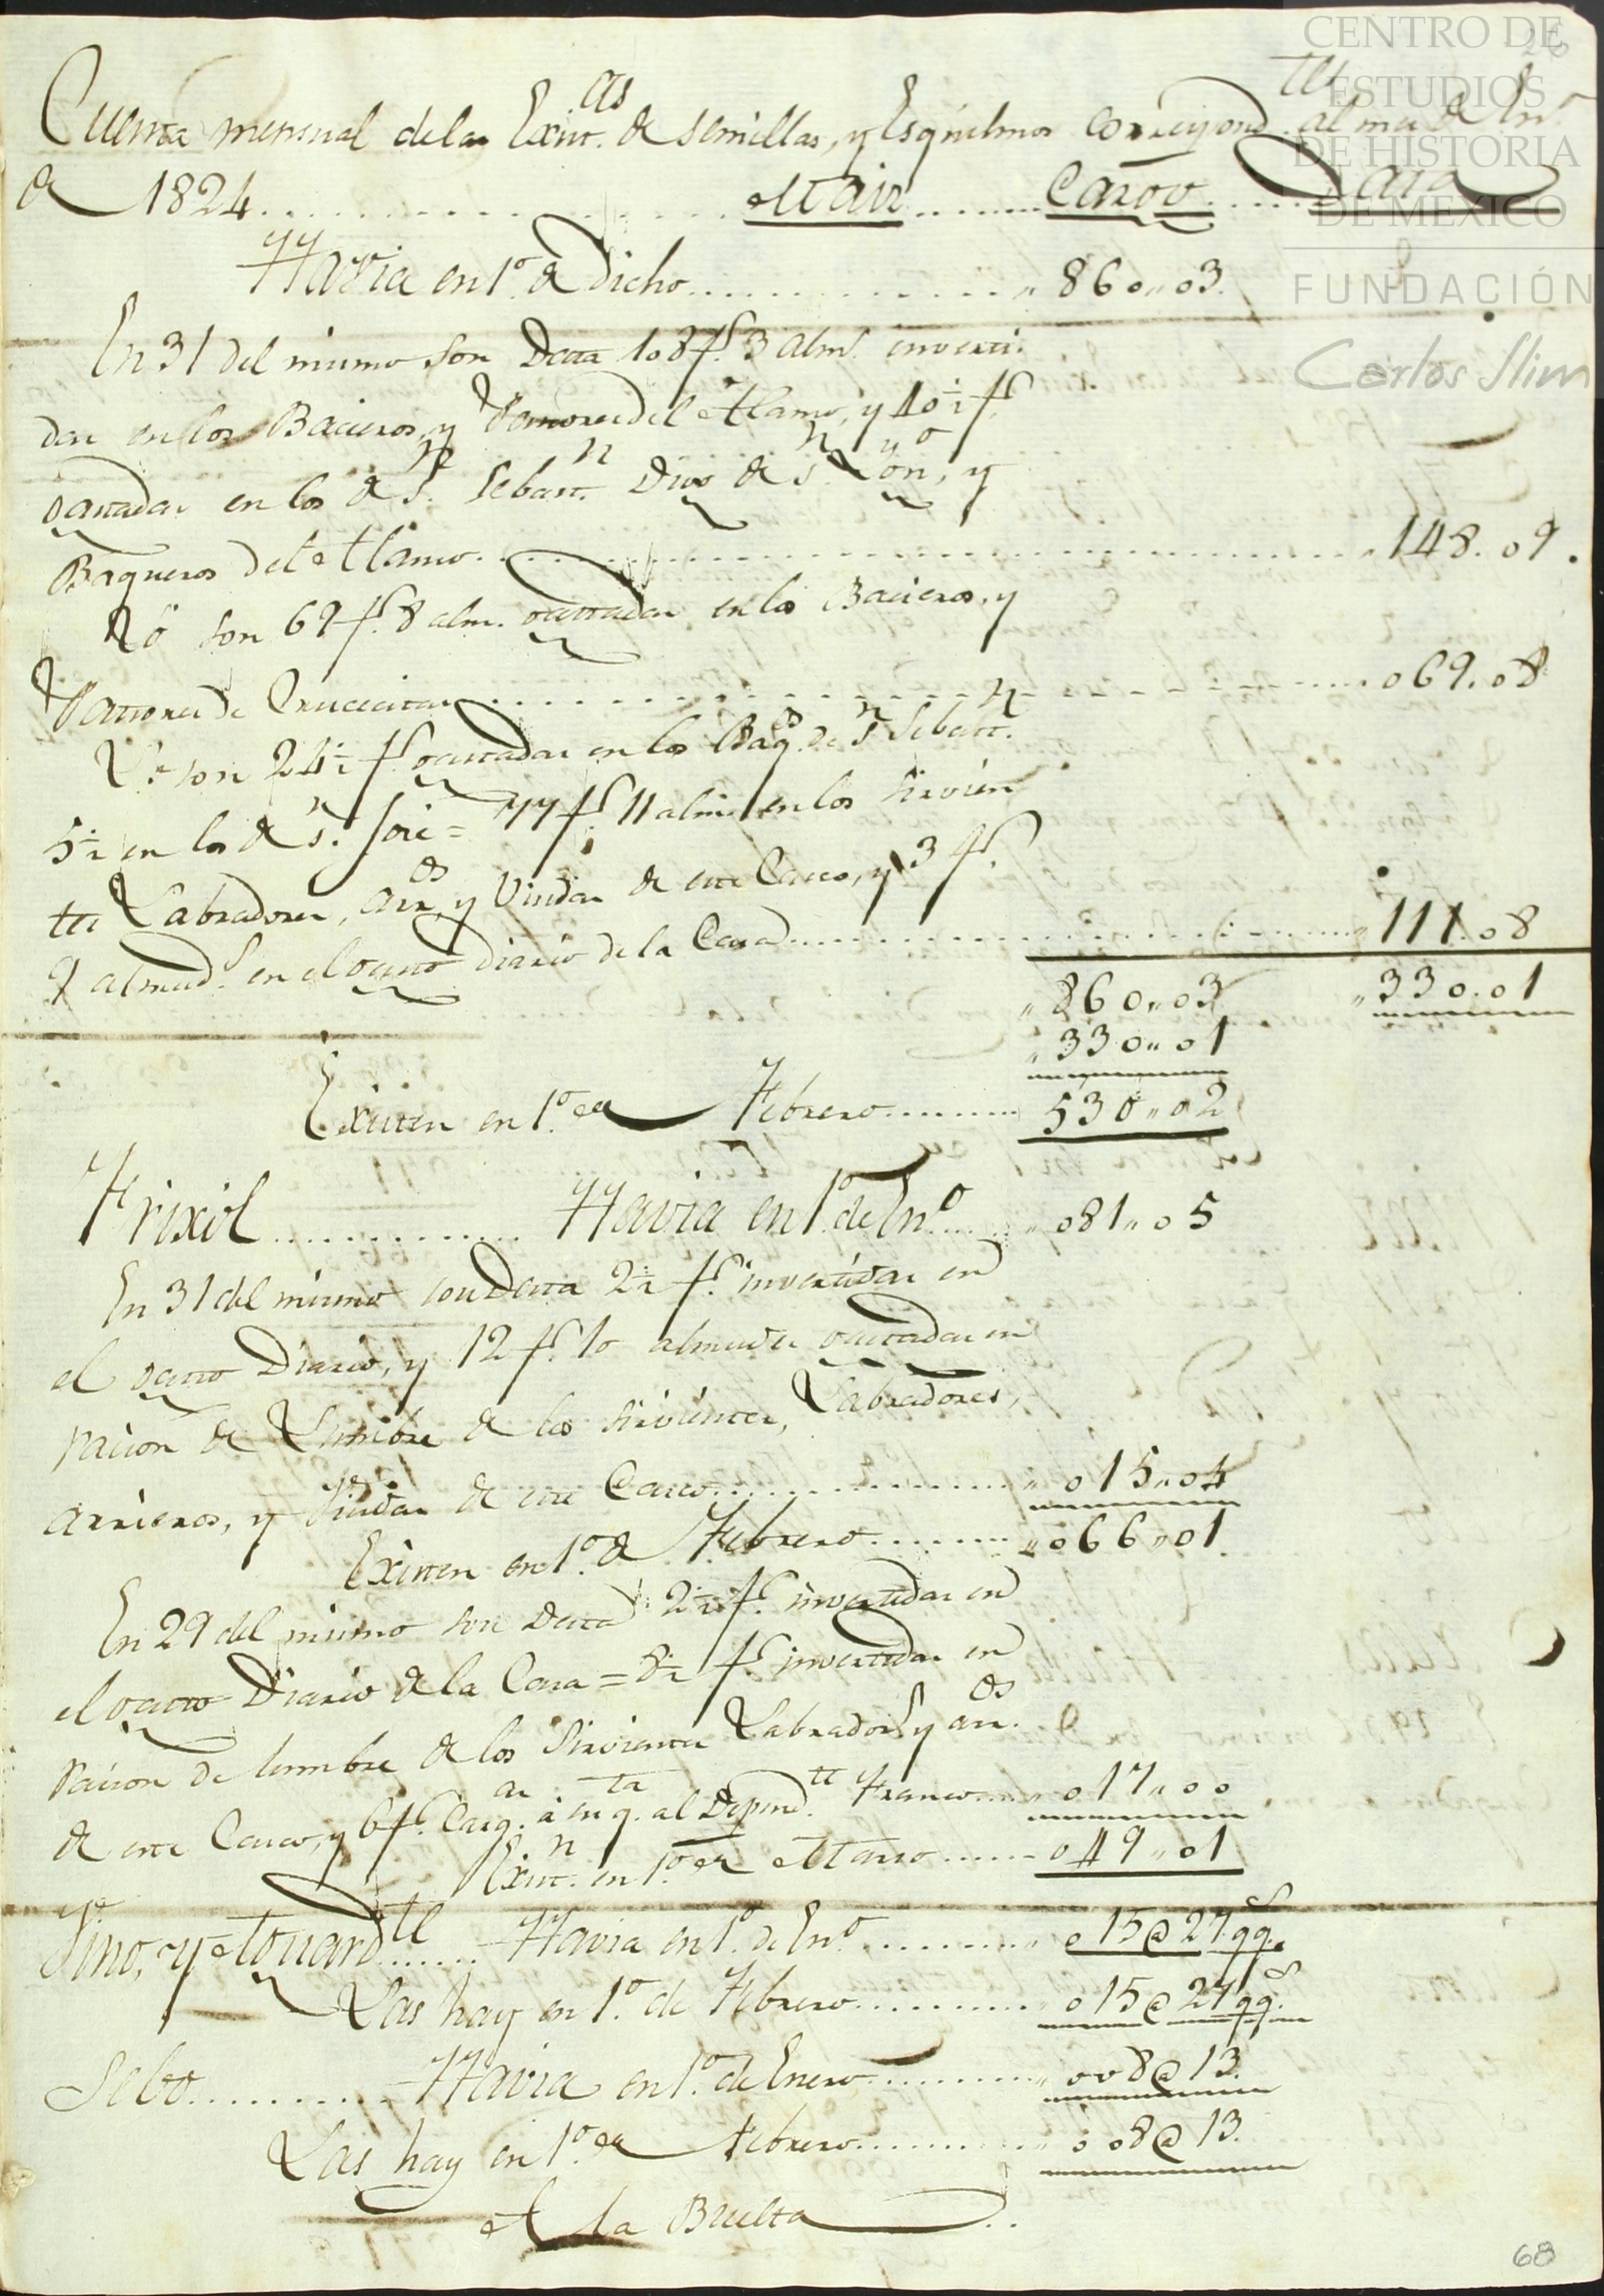 CENTRO DE
ESTUDIOS
DE HISTORIA
DE MEXICO
FUNDACIÓN
Carlos Slim
Cuenta mensual de las Exist.as de semillas, y Esquilmos correspond.tes al mes de En.o
de 1824 Maiz Cargo Data
Havia en 1.o de dicho 860,,03.
En 31 del mismo son Data 108 f.s 3 alm.s inverti-
das en los Bacieros, y Pastores del Alamo, y 40½ f.s
gastadas en los de S.n Sebast.n Dieo de S. y
Baqueros del Alamo 148.09.
Yd son 69 f.s 8 alm.s gastadas en los Bacieros, y
Pastores de Crucecitas 069.08
Yd son 24½ f.s gastadas en los Baq.os de S.n Sebast.n
5½ en los de S.n José = 77 f.s 11 alm.s en los Sirvien
tes Labradores, Arr.os y Viudas de este Casco, y 3 f.s
9 almud.s en el gasto diario de la Casa 111.08
860,,03 330.01
330,,01
Existen en 1.o de Febrero 530,,02
Frixol Havia en 1.o de En.o 081,,05
En 31 del mismo son Data 2½ f.s invertidas en
el gasto Diario, y 12 f.s 10 almudes gastadas en
racion de Lumbre de los Sirvientes, Labradores,
arrieros, y Viudas de este Casco 015,,04
Existen en 1.o de Febrero 066,,01.
En 29 del mismo son Data 2½ f.s invertidas en
el gasto Diario de la Casa = 8½ f.s invertidas en
racion de lumbre de los Sirvientes Labrador.s y arr.os
de este Casco, y 6 f.s Carg.as à su q.ta al Depend.te Franco 017,,00
Exist.n en 1.o de Marzo 049,,01
Vino, y Aguard.te Havia en 1.o de En.o 015@27 qq.s
Las hay en 1.o de Febrero 015@27 qq.s
Sebo Havia en 1.o de Enero 008@13.
Las hay en 1.o de Febrero 008@13.
A la Buelta
68